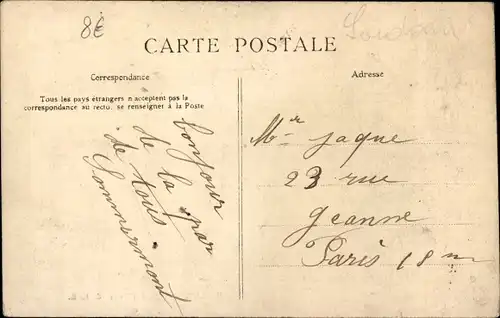 8€
CARTE POSTALE
Correspondance
Tous les pays étrangers n'acceptent pas la
correspondance au recto. se renseigner à la Poste
bonjour
de la par
de tous.
Sommermont
Adresse
Mr Jaque
23 rue
Jeanne
Paris 18m